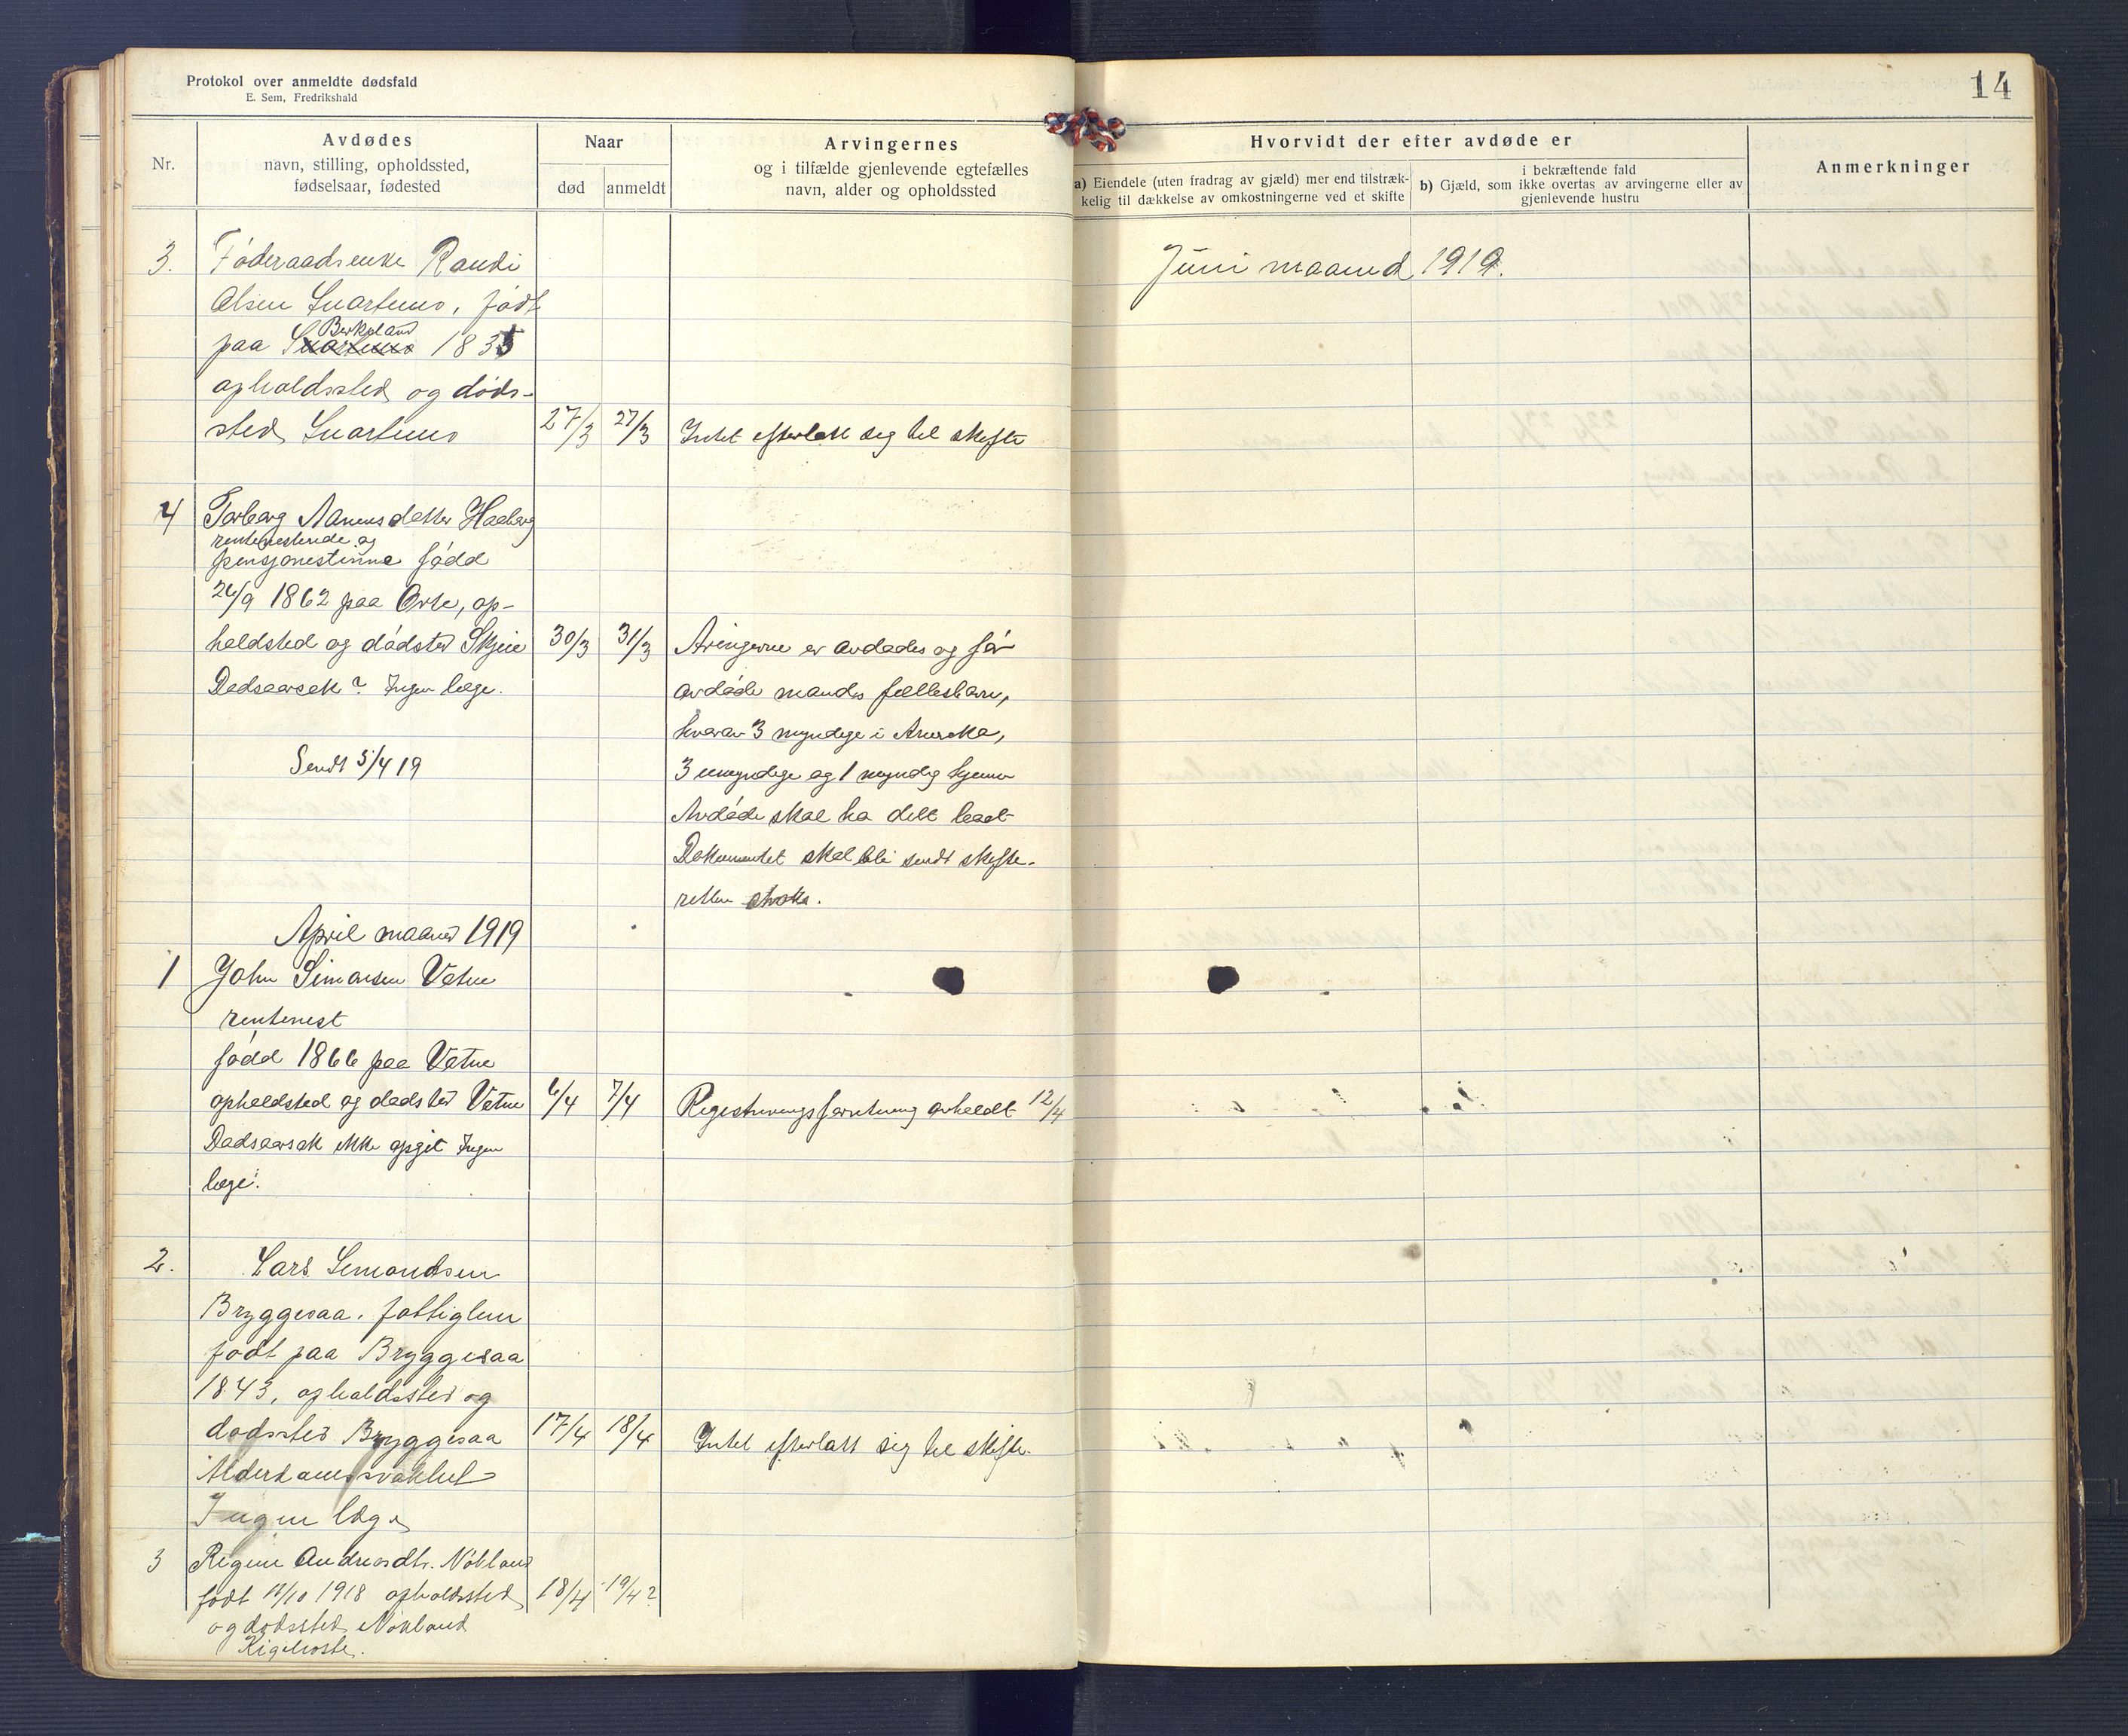 Protokol over anmeldte dødsfald
E. Sem, Fredrikshald
14
Nr.
Avdødes
navn, stilling, opholdssted,
fødselsaar, fødested
Naar
død
anmeldt
Arvingernes
og i tilfælde gjenlevende egtefælles
navn, alder og opholdssted
Hvorvidt der efter avdøde er
a) Eiendele (uten fradrag av gjæld) mer end tilstræk-
kelig til dækkelse av omkostningerne ved et skifte
i bekræftende fald
b) Gjæld, som ikke overtas av arvingerne eller av
gjenlevende hustru
Anmerkninger
3. Føderaadsenke Randi
Olsen Snartemo, født
Berkeland
paa Snartemo 1835
opholdssted og døds-
sted Snartemo 27/3 27/3 Intet efterlatt sig til skifte
4 Torborg Aanensdatter Haaberg
rentenestende og
pensjonestinne fødd
26/9 1862 paa Orte, op-
holdsted og dødsted Skjeie 30/3 31/3 Arvingerne er avdødes og før
Dødsaarsak? Ingen læge. avdøde mands fællesbarn,
hvorav 3 myndige i Amerika,
Sendt 5/4 19
3 umyndige og 1 myndig hjemme
Avdøde skal ha delt boet
Dokumentet skal bli sendt skifte-
retten straks.
April maaned 1919
1 John Simonsen Vatne
rentenest
fødd 1866 paa Vatne
opholdsted og dødsted Vatne 6/4 7/4 Registreringsforretning avholdt 12/4
Dødsaarsak ikke opgit Ingen
læge.
2. Lars Simondsen
Bryggesaa, fattiglem
født paa Bryggesaa
1843, opholdssted og
dødssted Bryggesaa 17/4 18/4 Intet efterlatt sig til skifte.
Alderdomssvakhet
Ingen læge
3 Regine Andreasdtr. Nökland
født 12/10 1918 opholdssted 18/4 19/4?
og dødssted Nökland
Kighoste.
Juni maaned 1919.